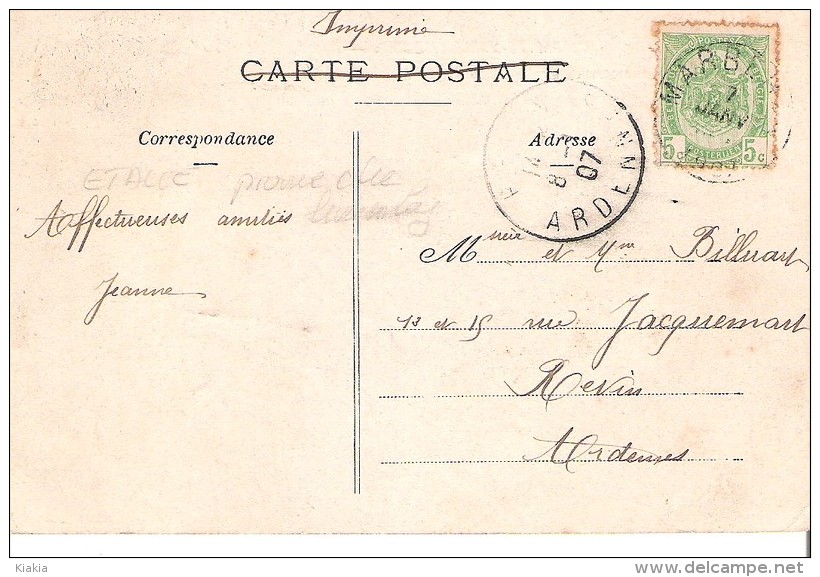 Imprimé
CARTE POSTALE
Correspondance
Adresse
ETALLE
Affectueuses amitiés
Jeanne
MARBE
7
JANV
5c 5c
8-
07
ARDENN
Mr et Mme Billuart
13 et 15 rue Jacquemart
Revin
Ardennes
Kiakia
www.delcampe.net